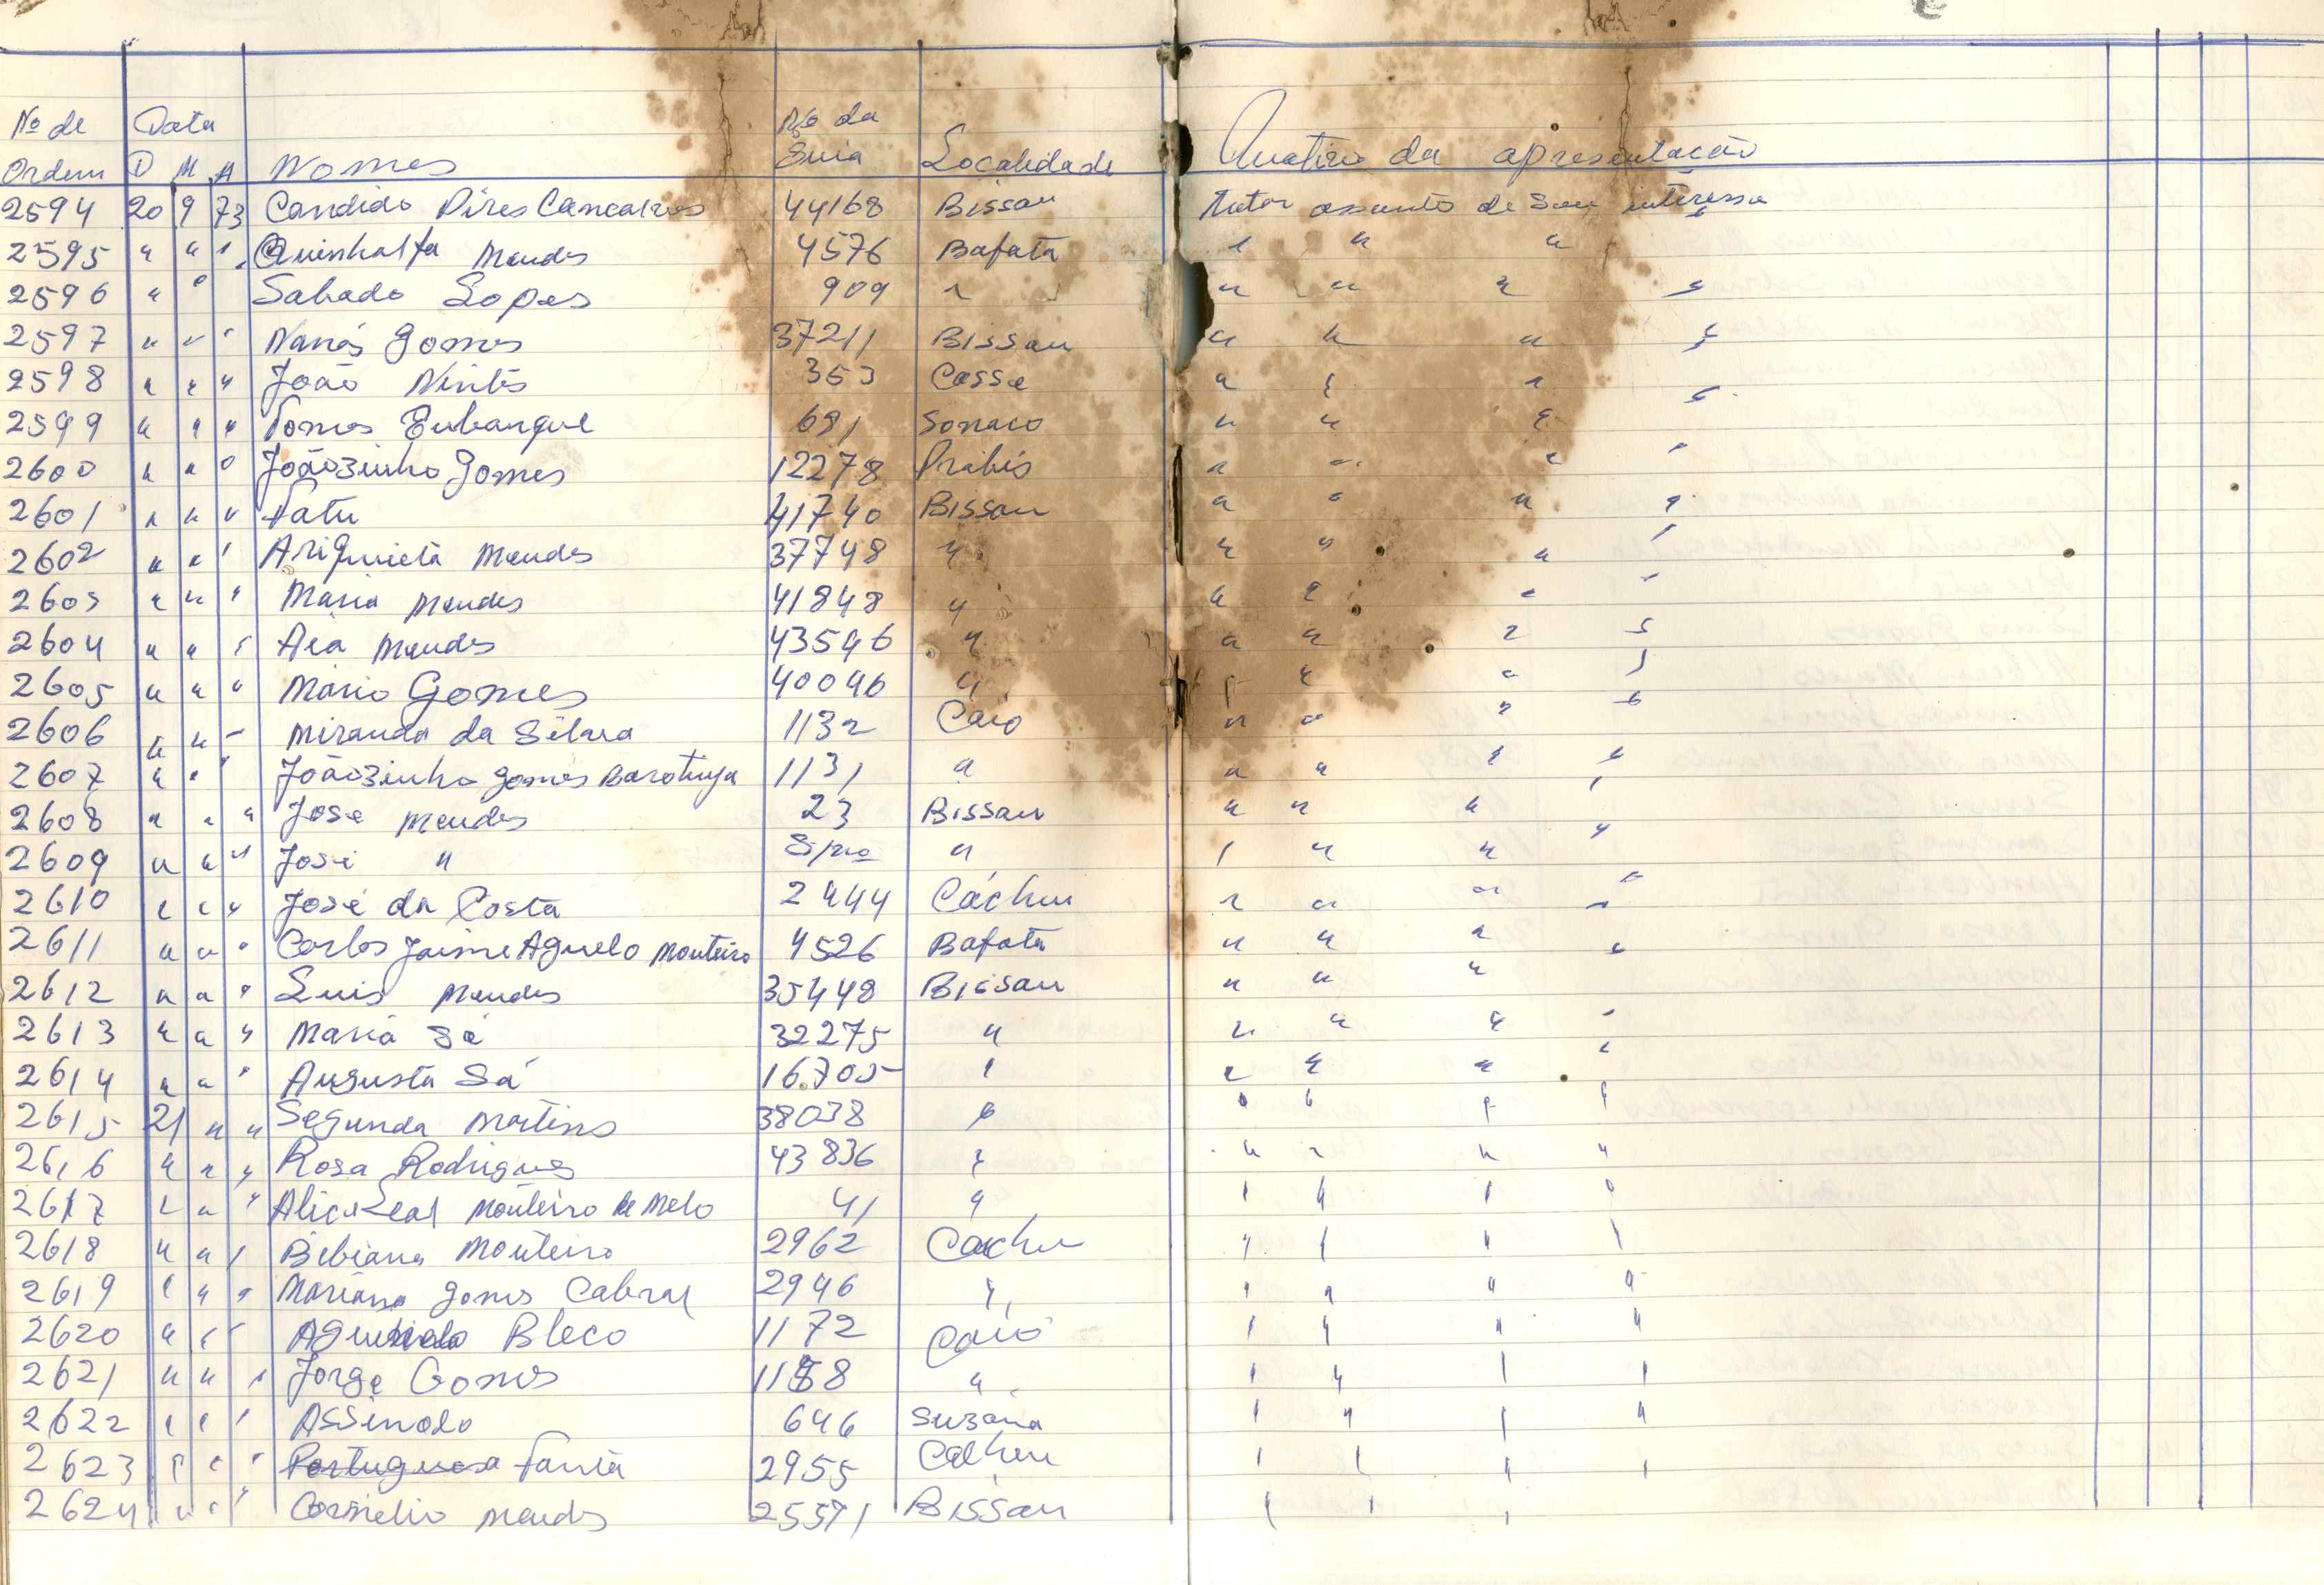 Nº de Data Nº da
Ordem D M A Nomes Guia Localidade Motivo da apresentação
2594 20 9 73 Candido Pires 44168 Bissau tratar assunto de seu interesse
2595 " " " Quinhalfa Mendes 4576 Bafata " " "
2596 " " Sabado Lopes 909 " " " " "
2597 " " " Gomes 37211 Bissau " " " "
2598 " " " João 353 " " " "
2599 " " " Tomas 681 Sonaco " " "
2600 " " " Joãozinho Gomes 12278 Prabis " " " "
2601 " " " Fatu 41740 Bissau " " " "
2602 " " " Ariquieta Mendes 37748 " " " " "
2603 " " " Maria Mendes 41848 " " " " "
2604 " " " Aia Mendes 43546 " " " " "
2605 " " " Mario Gomes 40046 " " " " "
2606 " " " Miranda da Silava 1132 Caio " " " "
2607 " " " Joãozinho Gomes 1131 " " " " "
2608 " " " Jose Mendes 23 Bissau " " " "
2609 " " " José " S/nº " " " " "
2610 " " " José da Costa 2444 Cácheu " " " "
2611 " " " Carlos Jaime Aguelo Monteiro 4526 Bafata " " " "
2612 " " " Luis Mendes 35448 Bissau " " "
2613 " " " Maria Sá 32275 " " " " "
2614 " " " Augusta Sá 16705 " " " " "
2615 21 " " Segunda Martins 38038 " " " " "
2616 " " " Rosa Rodrigues 43836 " " " " "
2617 " " " Alice Leal Monteiro de Melo 41 " " " " "
2618 " " " Bibiana Monteiro 2962 Cacheu " " " "
2619 " " " Mariana Gomes Cabral 2946 " " " " "
2620 " " " Bleco 1172 Caió " " " "
2621 " " " Jorge Gomes " " " " "
2622 " " " Assinado 646 Suzana " " " "
2623 " " " Portuguesa 2955 Cacheu " " " "
2624 " " " Cornelio Mendes Bissau " " "